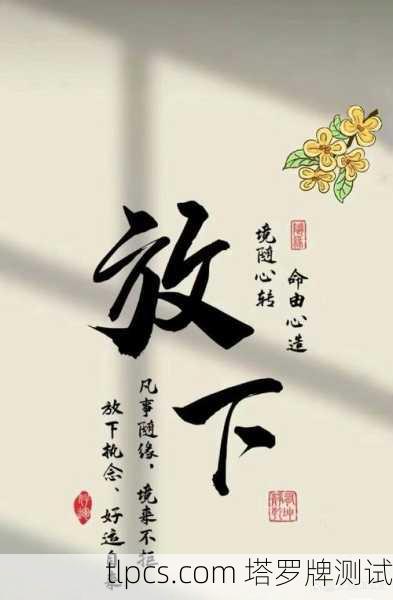 命由心造
境随心转
放下
凡事随缘，境来不拒
放下执念、好运自来
tlpcs.com 塔罗牌测试